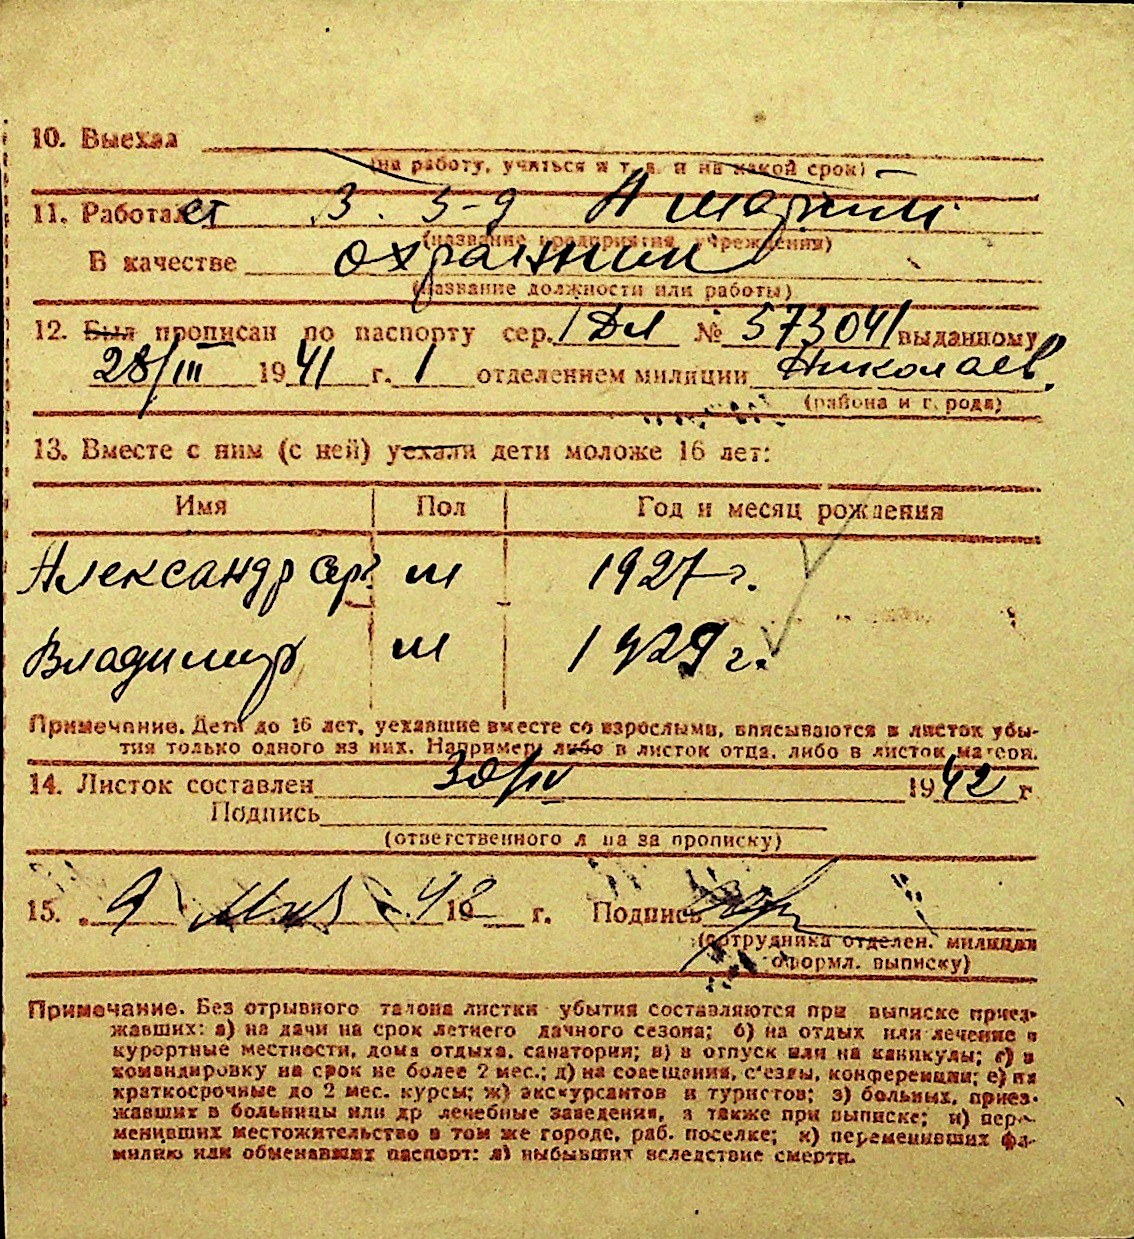 10. Выехал
(на работу, учиться и т. д. и на какой срок)
11. Работает з-д А марти
(название предприятия, учреждения)
В качестве охранник
(название должности или работы)
12. Был прописан по паспорту сер. I ДЛ № 573041 выданному
28/III 1941 г. 1 отделением милиции Николаев.
(района и города)
13. Вместе с ним (с ней) уехали дети моложе 16 лет:
Имя Пол Год и месяц рождения
Александр Сер. м 1927 г.
Владимир м 1929 г.
Примечание. Дети до 16 лет, уехавшие вместе со взрослыми, вписываются в листок убы-
тия только одного из них. Например, либо в листок отца, либо в листок матери.
14. Листок составлен 30/IV 1942 г
Подпись
(ответственного лица за прописку)
15. 9 42 19 г. Подпись
(сотрудника отделен. милиции
оформл. выписку)
Примечание. Без отрывного талона листки убытия составляются при выписке приез-
жавших: а) на дачи на срок летнего дачного сезона; б) на отдых или лечение в
курортные местности, дома отдыха, санатории; в) в отпуск или на каникулы; г) в
командировку на срок не более 2 мес.; д) на совещания, с'езды, конференции; е) на
краткосрочные до 2 мес. курсы; ж) экскурсантов и туристов; з) больных, приез-
жавших в больницы или др лечебные заведения, а также при выписке; и) пере-
менивших местожительство в том же городе, раб. поселке; к) переменивших фа-
милию или обменявших паспорт; л) выбывших вследствие смерти.